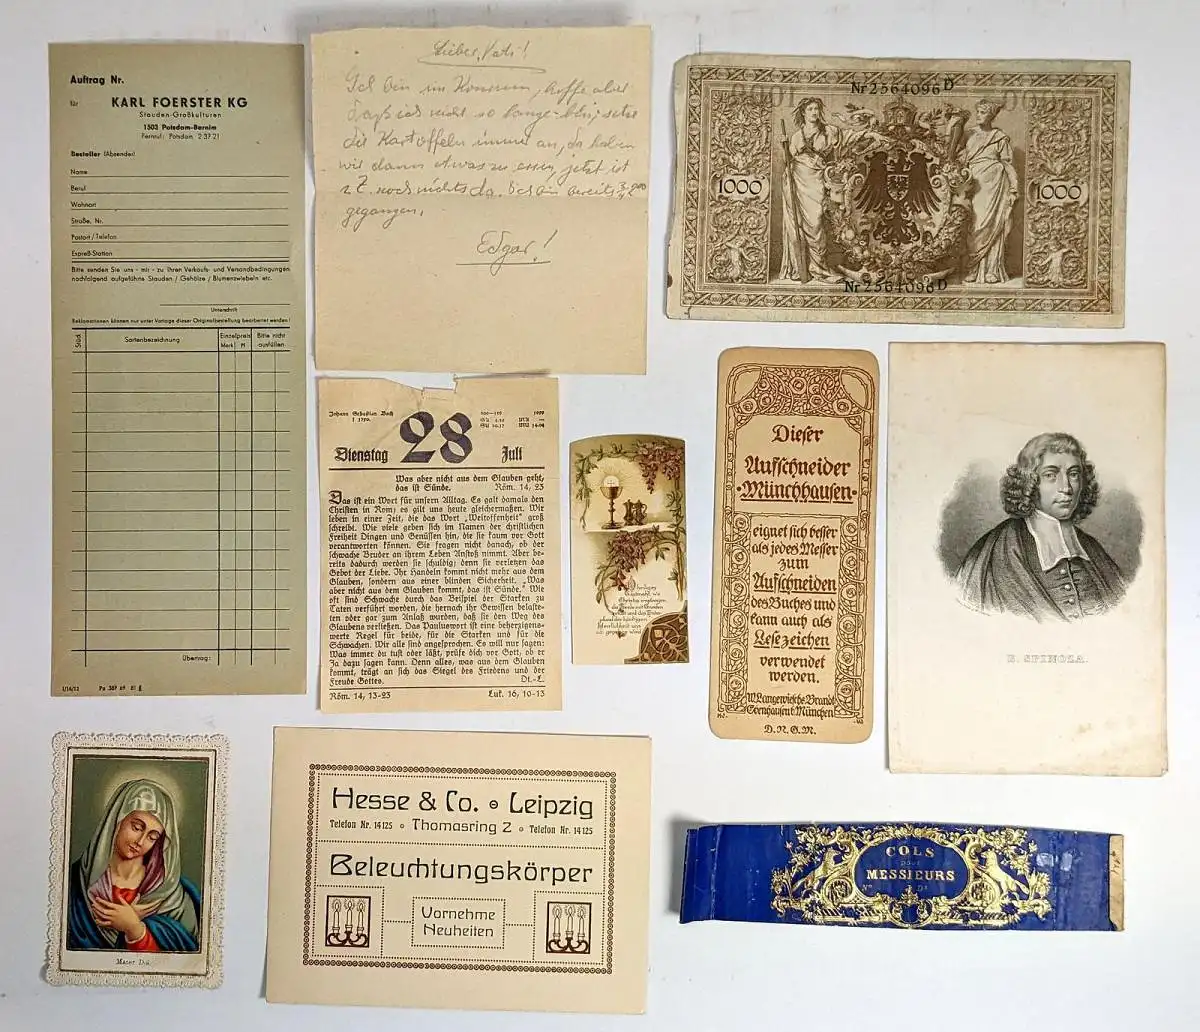 Auftrag Nr.
für KARL FOERSTER KG
Stauden-Großkulturen
1503 Potsdam-Bornim
Fernruf: Potsdam 2 37 21
Besteller (Absender)
Name
Beruf
Wohnort
Straße, Nr.
Postort/Telefon
Expreß-Station
Bitte senden Sie uns - mir - zu Ihren Verkaufs- und Versandbedingungen
nachfolgend aufgeführte Stauden / Gehölze / Blumenzwiebeln etc.
Unterschrift
Reklamationen können nur unter Vorlage dieser Originalbestellung bearbeitet werden!
Stück
Sortenbezeichnung
Einzelpreis
Mark Pf
Bitte nicht
ausfüllen
Übertrag:
Lieber Vati!
Ich bin im Konsum, hoffe aber
daß ich nicht so lange bin; setze
die Kartoffeln immer an, da haben
wir dann etwas zu essen, jetzt ist
z. Z. noch nichts da. Ich bin bereits
gegangen.
Edgar!
Nr 2564096 D
1000
1000
Nr 2564096 D
Johann Sebastian Bach
† 1750.
Dienstag 28 Juli
Was aber nicht aus dem Glauben geht,
das ist Sünde. Röm. 14, 23
Das ist ein Wort für unsern Alltag. Es galt damals den
Christen in Rom; es gilt uns heute gleichermaßen. Wir
leben in einer Zeit, die das Wort „Weltoffenheit“ groß
schreibt. Wie viele geben sich im Namen der christlichen
Freiheit Dingen und Genüssen hin, die sie kaum vor Gott
verantworten können. Sie fragen nicht danach, ob der
schwache Bruder an ihrem Leben Anstoß nimmt. Aber be-
reits dadurch werden sie schuldig; denn sie verletzen das
Gebot der Liebe. Ihr Handeln kommt nicht mehr aus dem
Glauben, sondern aus einer blinden Sicherheit. „Was
aber nicht aus dem Glauben kommt, das ist Sünde.“ Wie
oft sind Schwache durch das Beispiel der Starken zu
Taten verführt worden, die hernach ihr Gewissen belaste-
ten oder gar zum Anlaß wurden, daß sie den Weg des
Glaubens verließen. Das Pauluswort ist eine beherzigens-
werte Regel für beide, für die Starken und für die
Schwachen. Wir alle sind angesprochen. Es will nur sagen:
Was immer du tust oder läßt, prüfe dich vor Gott, ob er
Ja dazu sagen kann. Denn alles, was aus dem Glauben
kommt, trägt an sich das Siegel des Friedens und der
Freude Gottes. Dt.-L.
Röm. 14, 13-23 Luk. 16, 10-13
Dieser
Aufschneider
Münchhausen
eignet sich besser
als jedes Messer
zum
Aufschneiden
des Buches und
kann auch als
Lesezeichen
verwendet
werden.
W. Langewiesche-Brandt
Ebenhausen b. München
D.R.G.M.
B. SPINOZA.
Mater Dol.
Hesse & Co. Leipzig
Telefon Nr. 14125 Thomasring 2 Telefon Nr. 14125
Beleuchtungskörper
Vornehme
Neuheiten
COLS
pour
MESSIEURS